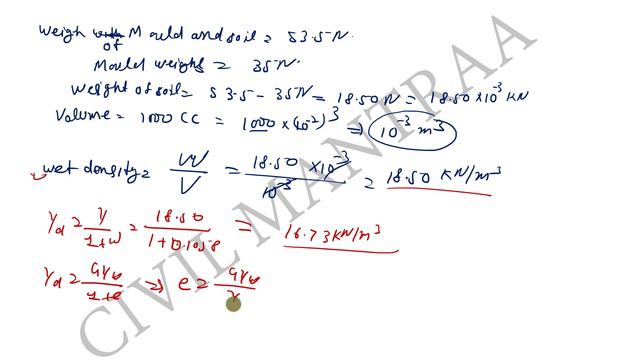 Weigh of Mould and soil = 53.5 N.
Mould weight = 35 N.
Weight of soil = 53.5 - 35N = 18.50 N = 18.50 × 10⁻³ KN
Volume = 1000 CC = 1000 × (10⁻²)³ ⇒ 10⁻³ m³
wet density = W/V = 18.50 × 10⁻³ / 10⁻³ = 18.50 KN/m³
γd = γ/1+w = 18.50 / 1+0.1058 = 16.73 KN/m³
γd = Gγw/1+e ⇒ e = Gγw/γ
CIVIL MANTRAA